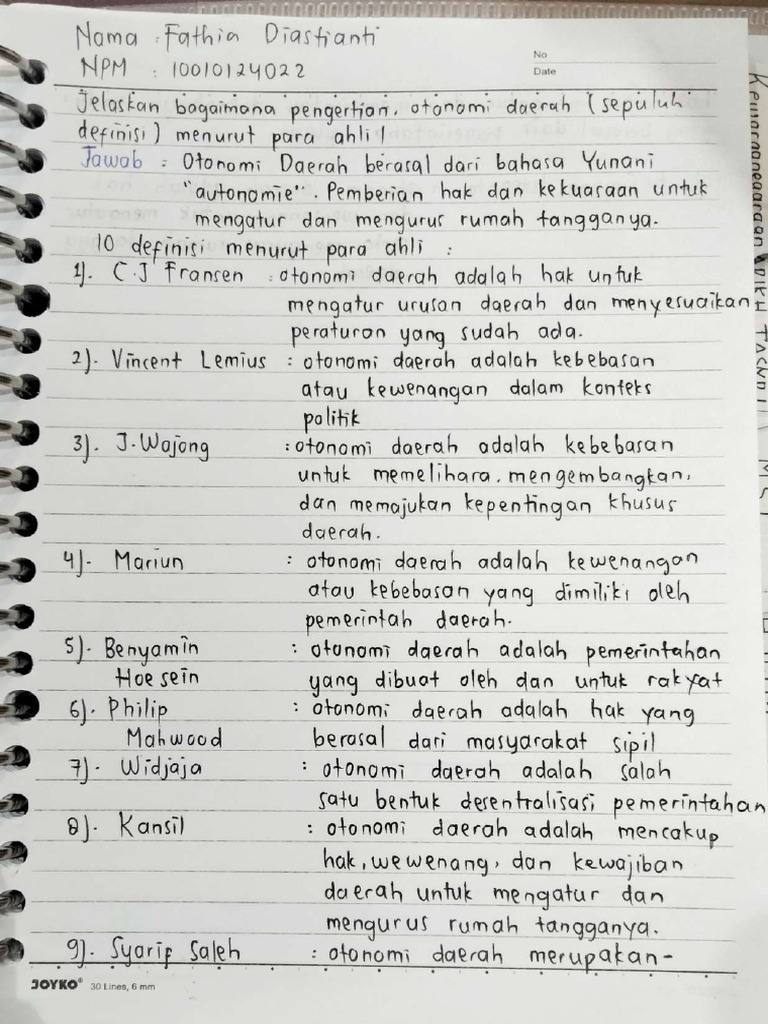 Nama : Fathia Diastianti
NPM : 10010124022
No
Date
Jelaskan bagaimana pengertian, otonomi daerah (sepuluh
definisi) menurut para ahli!
Jawab : Otonomi Daerah berasal dari bahasa Yunani
"autonomie". Pemberian hak dan kekuasaan untuk
mengatur dan mengurus rumah tangganya.
10 definisi menurut para ahli :
1). C.J Fransen : otonomi daerah adalah hak untuk
mengatur urusan daerah dan menyesuaikan
peraturan yang sudah ada.
2). Vincent Lemius : otonomi daerah adalah kebebasan
atau kewenangan dalam konteks
politik
3). J. Wajong : otonomi daerah adalah kebebasan
untuk memelihara, mengembangkan,
dan memajukan kepentingan khusus
daerah.
4). Mariun : otonomi daerah adalah kewenangan
atau kebebasan yang dimiliki oleh
pemerintah daerah.
5). Benyamin : otonomi daerah adalah pemerintahan
Hoesein yang dibuat oleh dan untuk rakyat
6). Philip : otonomi daerah adalah hak yang
Mahwood berasal dari masyarakat sipil
7). Widjaja : otonomi daerah adalah salah
satu bentuk desentralisasi pemerintahan
8). Kansil : otonomi daerah adalah mencakup
hak, wewenang, dan kewajiban
daerah untuk mengatur dan
mengurus rumah tangganya.
9). Syarif Saleh : otonomi daerah merupakan-
JOYKO® 30 Lines, 6 mm